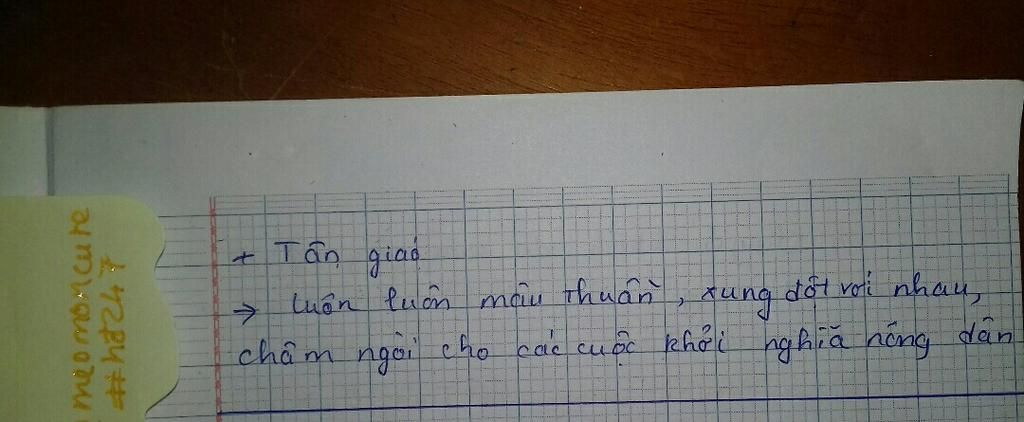 meomoncute
#hđ247
+ Tân giáo
→ luôn luôn mâu thuẫn, xung đột với nhau,
châm ngòi cho các cuộc khởi nghĩa nông dân